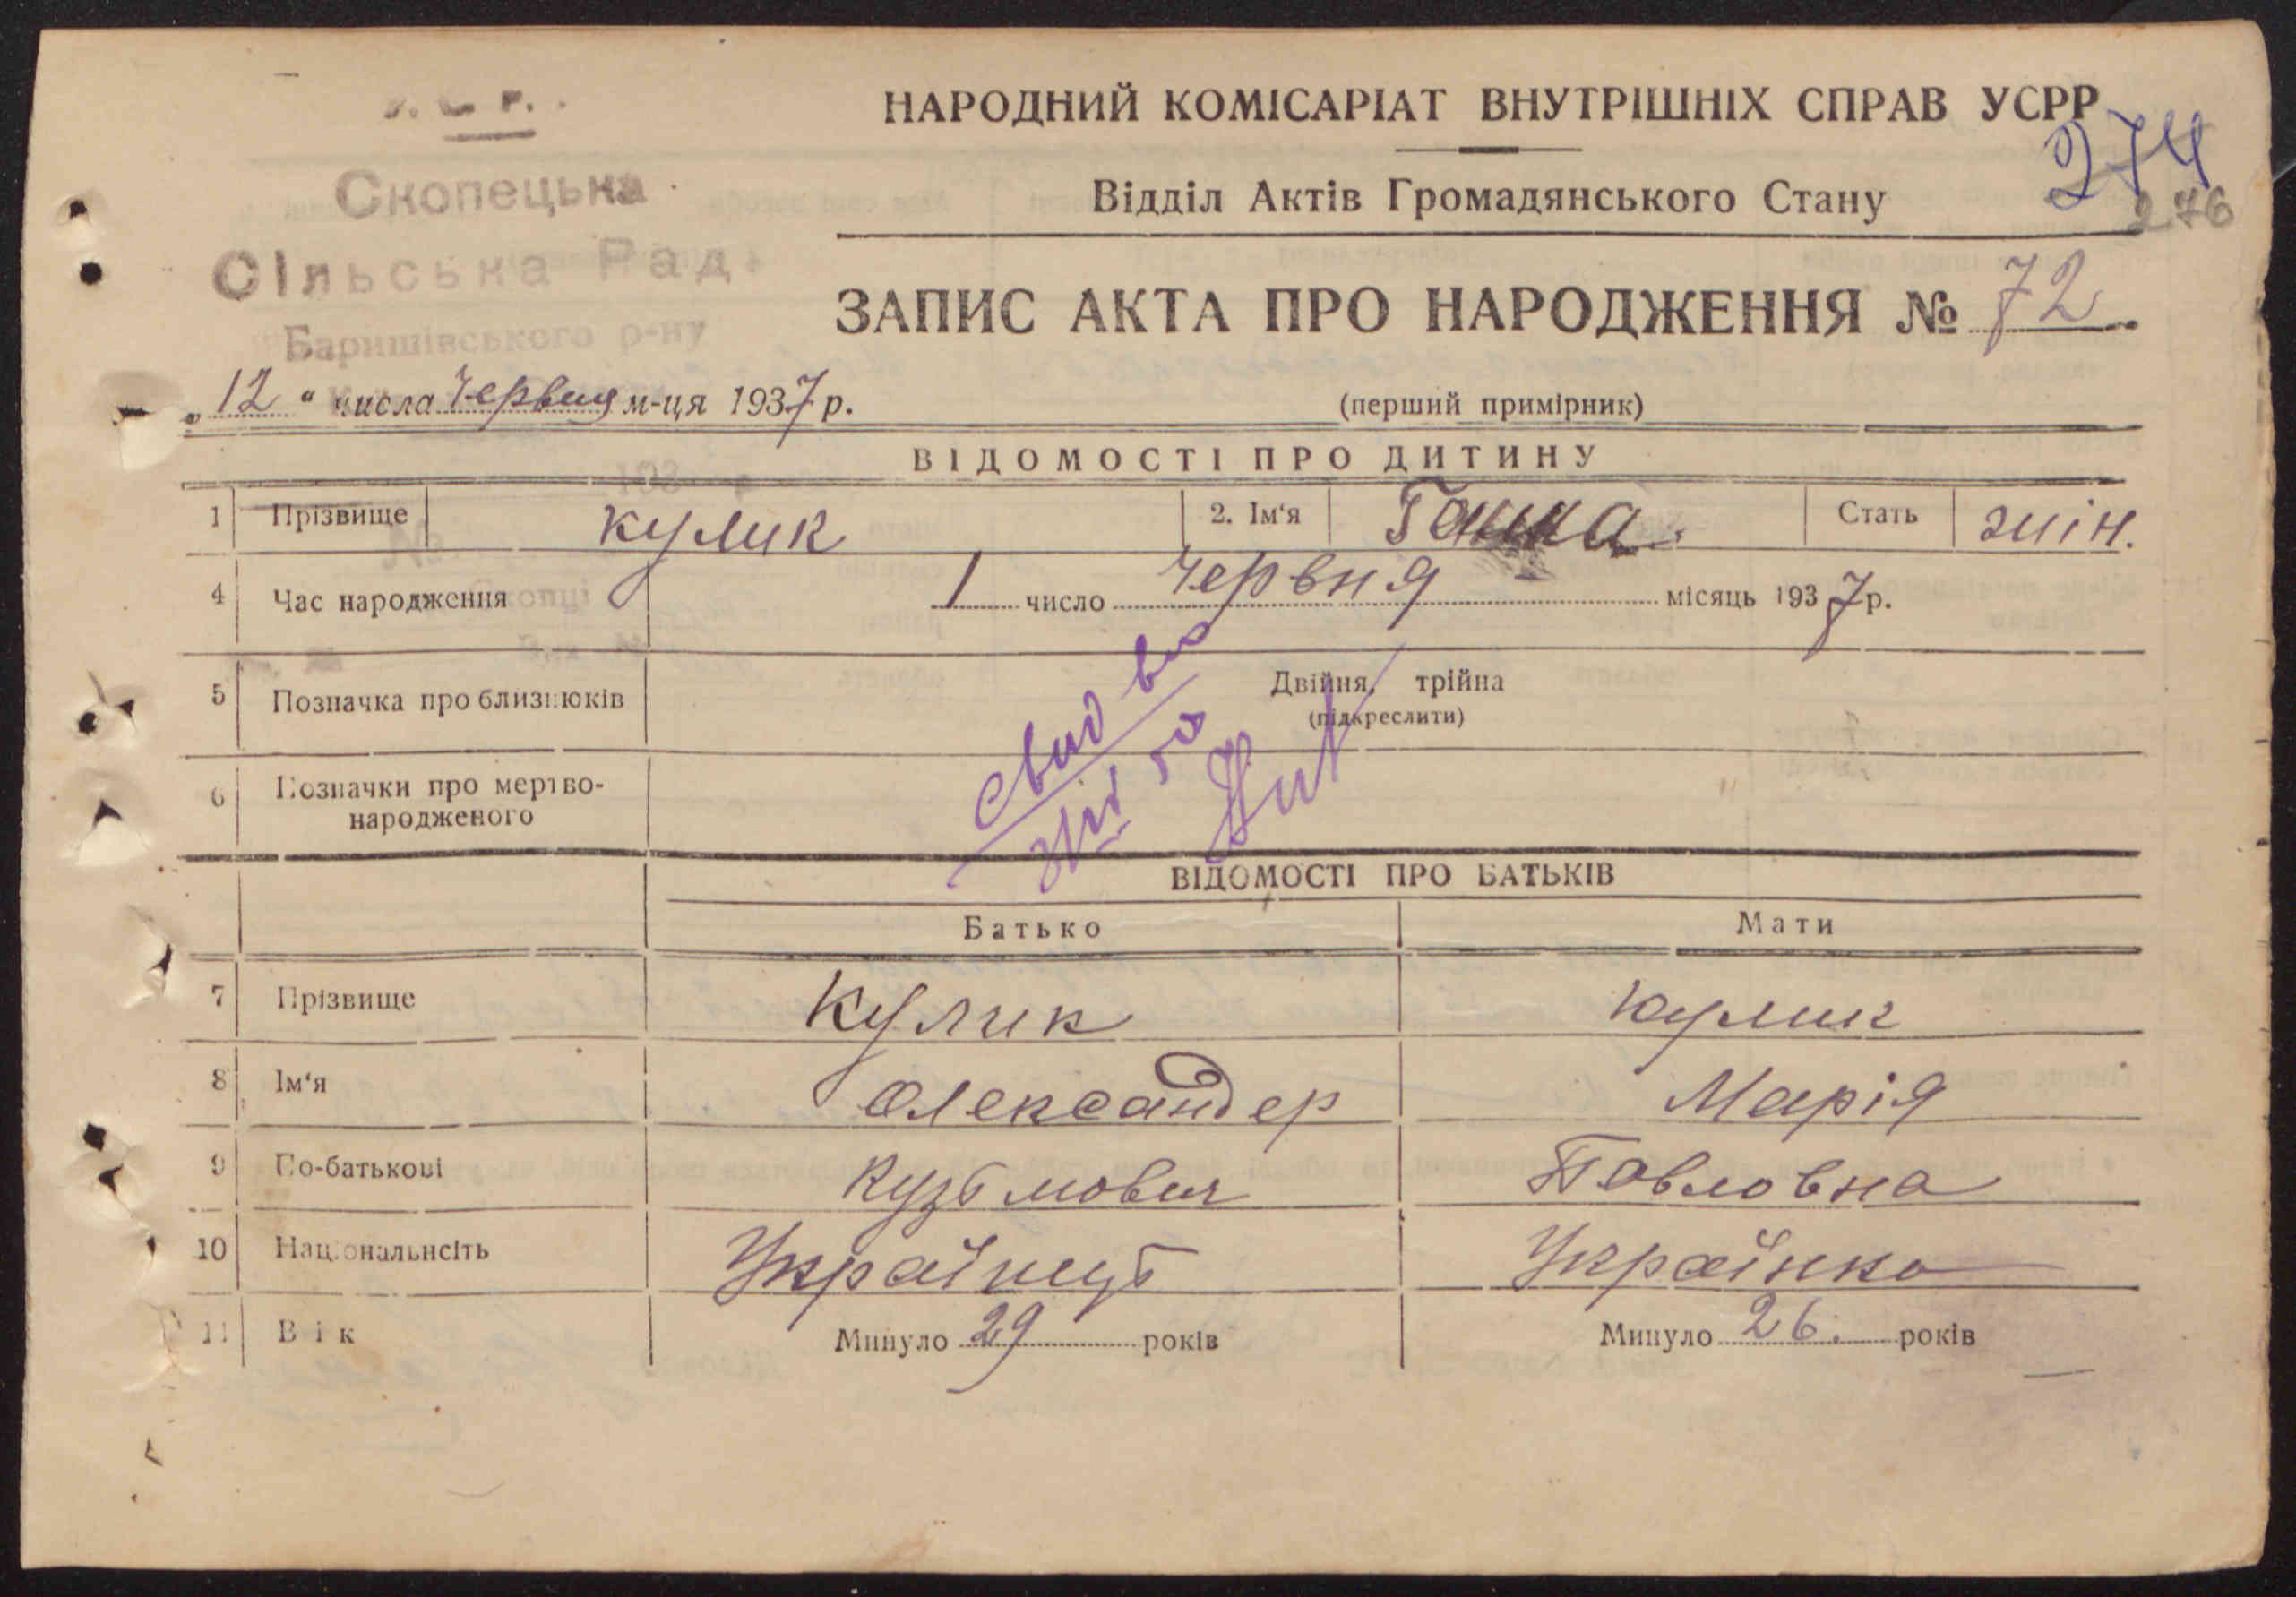 У. С. Р. Р.
Скопецька
Сільська Рада
Баришівського р-ну
НАРОДНИЙ КОМІСАРІАТ ВНУТРІШНІХ СПРАВ УСРР
274
276
Відділ Актів Громадянського Стану
ЗАПИС АКТА ПРО НАРОДЖЕННЯ № 72
„12“ числа Червня м-ця 1937 р.
(перший примірник)
ВІДОМОСТІ ПРО ДИТИНУ
1 Прізвище Кулик 2. Ім'я Ганна Стать жін.
4 Час народження 1 число Червня місяць 1937 р.
5 Позначка про близнюків Двійня, трійна
(підкреслити)
6 Позначки про мертво-
народженого
ВІДОМОСТІ ПРО БАТЬКІВ
Батько Мати
7 Прізвище Кулик Кулик
8 Ім'я Олександер Марія
9 По-батькові Кузьмович Павловна
10 Національнсіть Українець Українка
11 Вік Минуло 29 років Минуло 26. років